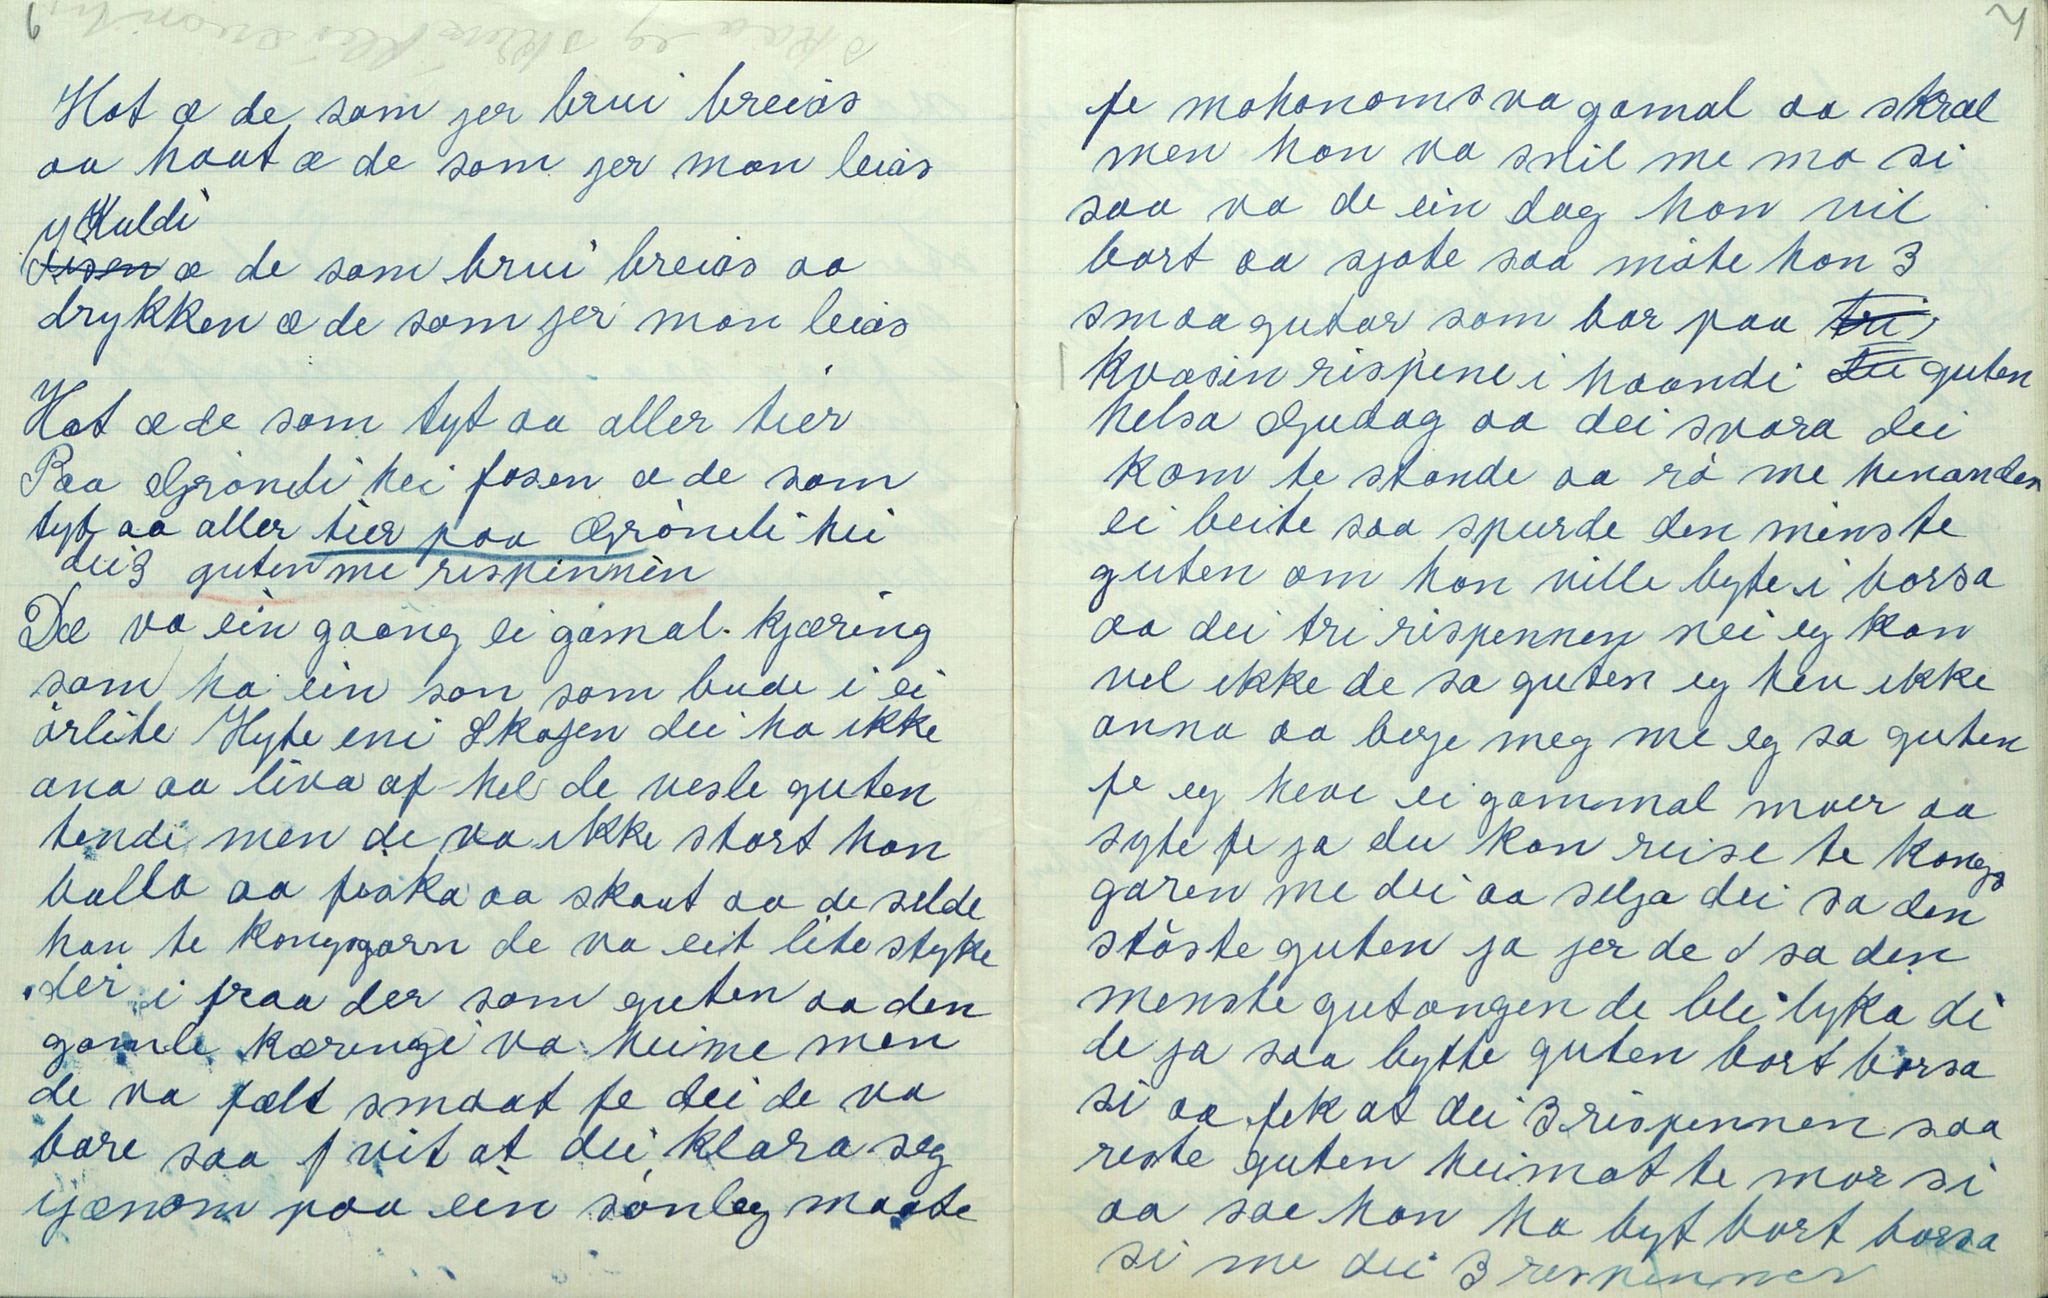 6
Hot æ de som jer brui breias
aa haat æ de som jer mon leias
y Kuldi
æ de som brui breias aa
drykken æ de som jer mon leias
Hot æ de som tyt aa aller tier
Paa Gröndi hei fosen æ de som
tyt aa aller tier paa Gröndi hei
dei 3 guten me rispinnin
De va ein gaang ei gamal kjæring
som ha ein son som bude i ei
örlite Hyte eni Skogen dei ha ikke
ana aa liva af hel de vesle guten
tendi men de va ikke stort han
balla aa feska aa skaut aa de selde
han te kongsgarn de va eit lite styke
der i fraa der som guten aa den
gamle kæringi va heime men
de va fælt smaat fe dei de va
bare saa f vit at dei klara seg
ijænom paa ein sönleg maate
7
fe mohonoms va gamal aa skræl
men han va snil me mo si
saa va de ein dag han vil
bort aa sjote saa möte han 3
smaa gutar som bar paa tri
kvæsin rispene i haandi guten
helsa Gudag aa dei svara dei
kom te stande aa rö me henanden
ei beite saa spurde den minste
guten om han ville byte i borsa
aa dei tri rispennen nei eg kan
vel ikke de sa guten eg hev ikke
anna aa berje meg me eg sa guten
fe eg heve ei gammal moer aa
syte fe ja du kan reise te kongs
garen me dei aa selja dei sa den
störste guten ja jer de sa den
menste gutongen de bli lyka di
de ja saa bytte guten bort borsa
si aa fek at dei 3 rispennen saa
reste guten heimat te mor si
aa sae han ha byt bort borsa
si me dei 3 respennen